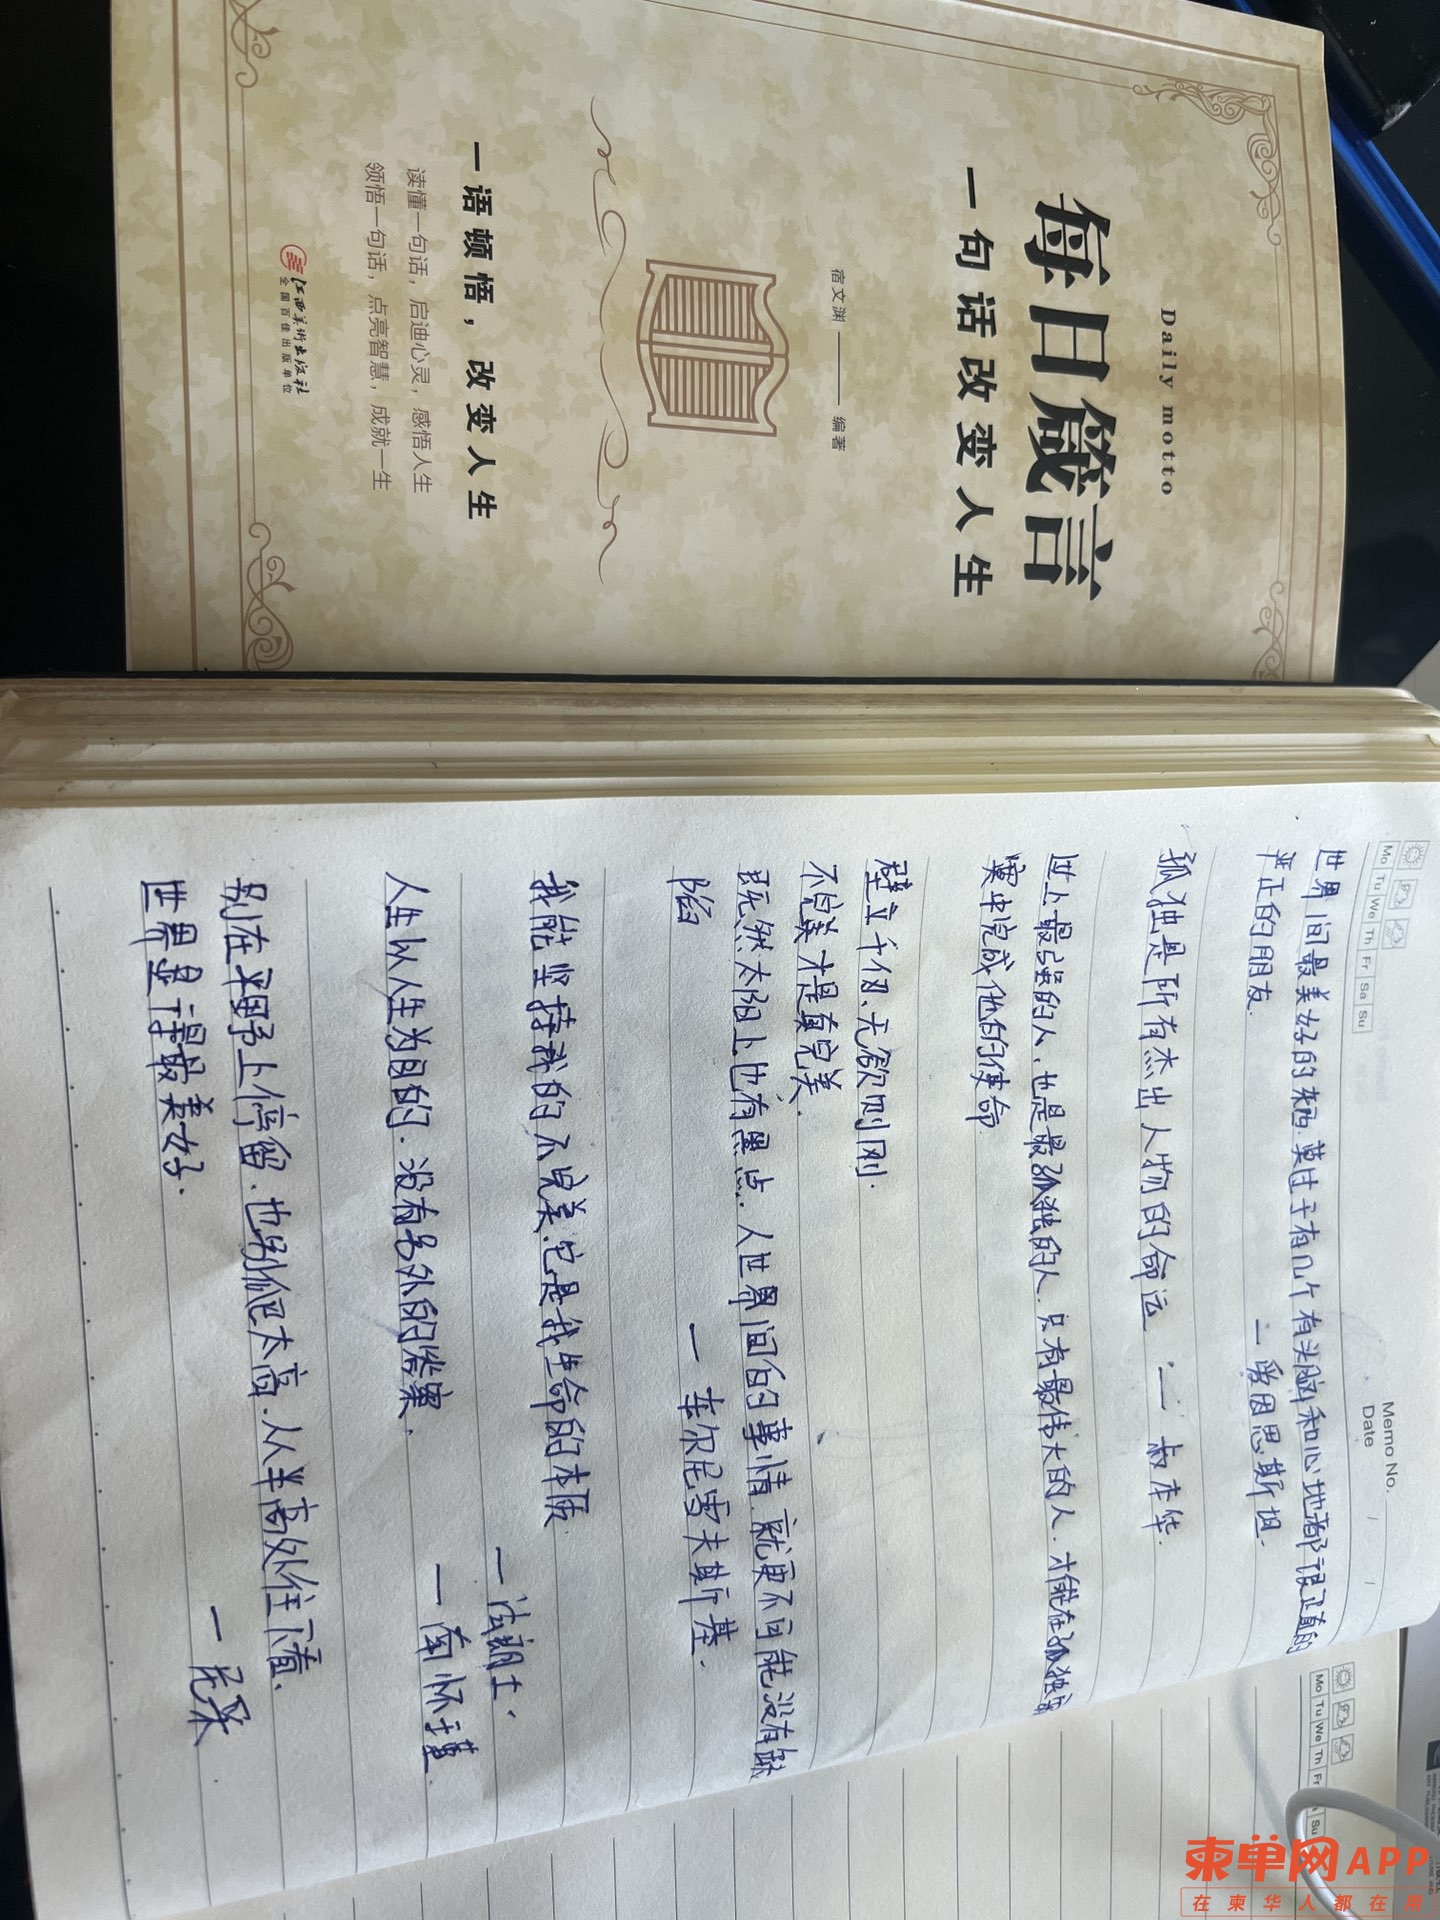 Daily motto
每日箴言
一句话改变人生
宿文渊 —— 编著
一语顿悟，改变人生
读懂一句话，启迪心灵，感悟人生
领悟一句话，点亮智慧，成就一生
江西美术出版社
全国百佳出版单位
Memo No.
Mo Tu We Th Fr Sa Su
Date / /
世界间最美好的东西.莫过于有几个有头脑和心地都很正直的
严正的朋友.
— 爱因思斯坦.
孤独是所有杰出人物的命运 — 叔本华.
世上最强的人.也是最孤独的人.只有最伟大的人.才能在孤独寞
寞中完成他的使命.
壁立千仞、无欲则刚.
不完美才是真完美.
既然太阳上也有黑点.人世界间的事情.就更不可能没有缺
陷
— 车尔尼雪夫斯基.
我能坚持我的不完美.它是我生命的本质.
— 法朗士.
人生以人生为目的.没有另外的答案.
— 南怀瑾.
别在平野上停留.也别爬太高.从半高处往下看.
世界显得最美好.
— 尼采
Mo Tu We Th Fr
Su
柬单网APP
在柬华人都在用